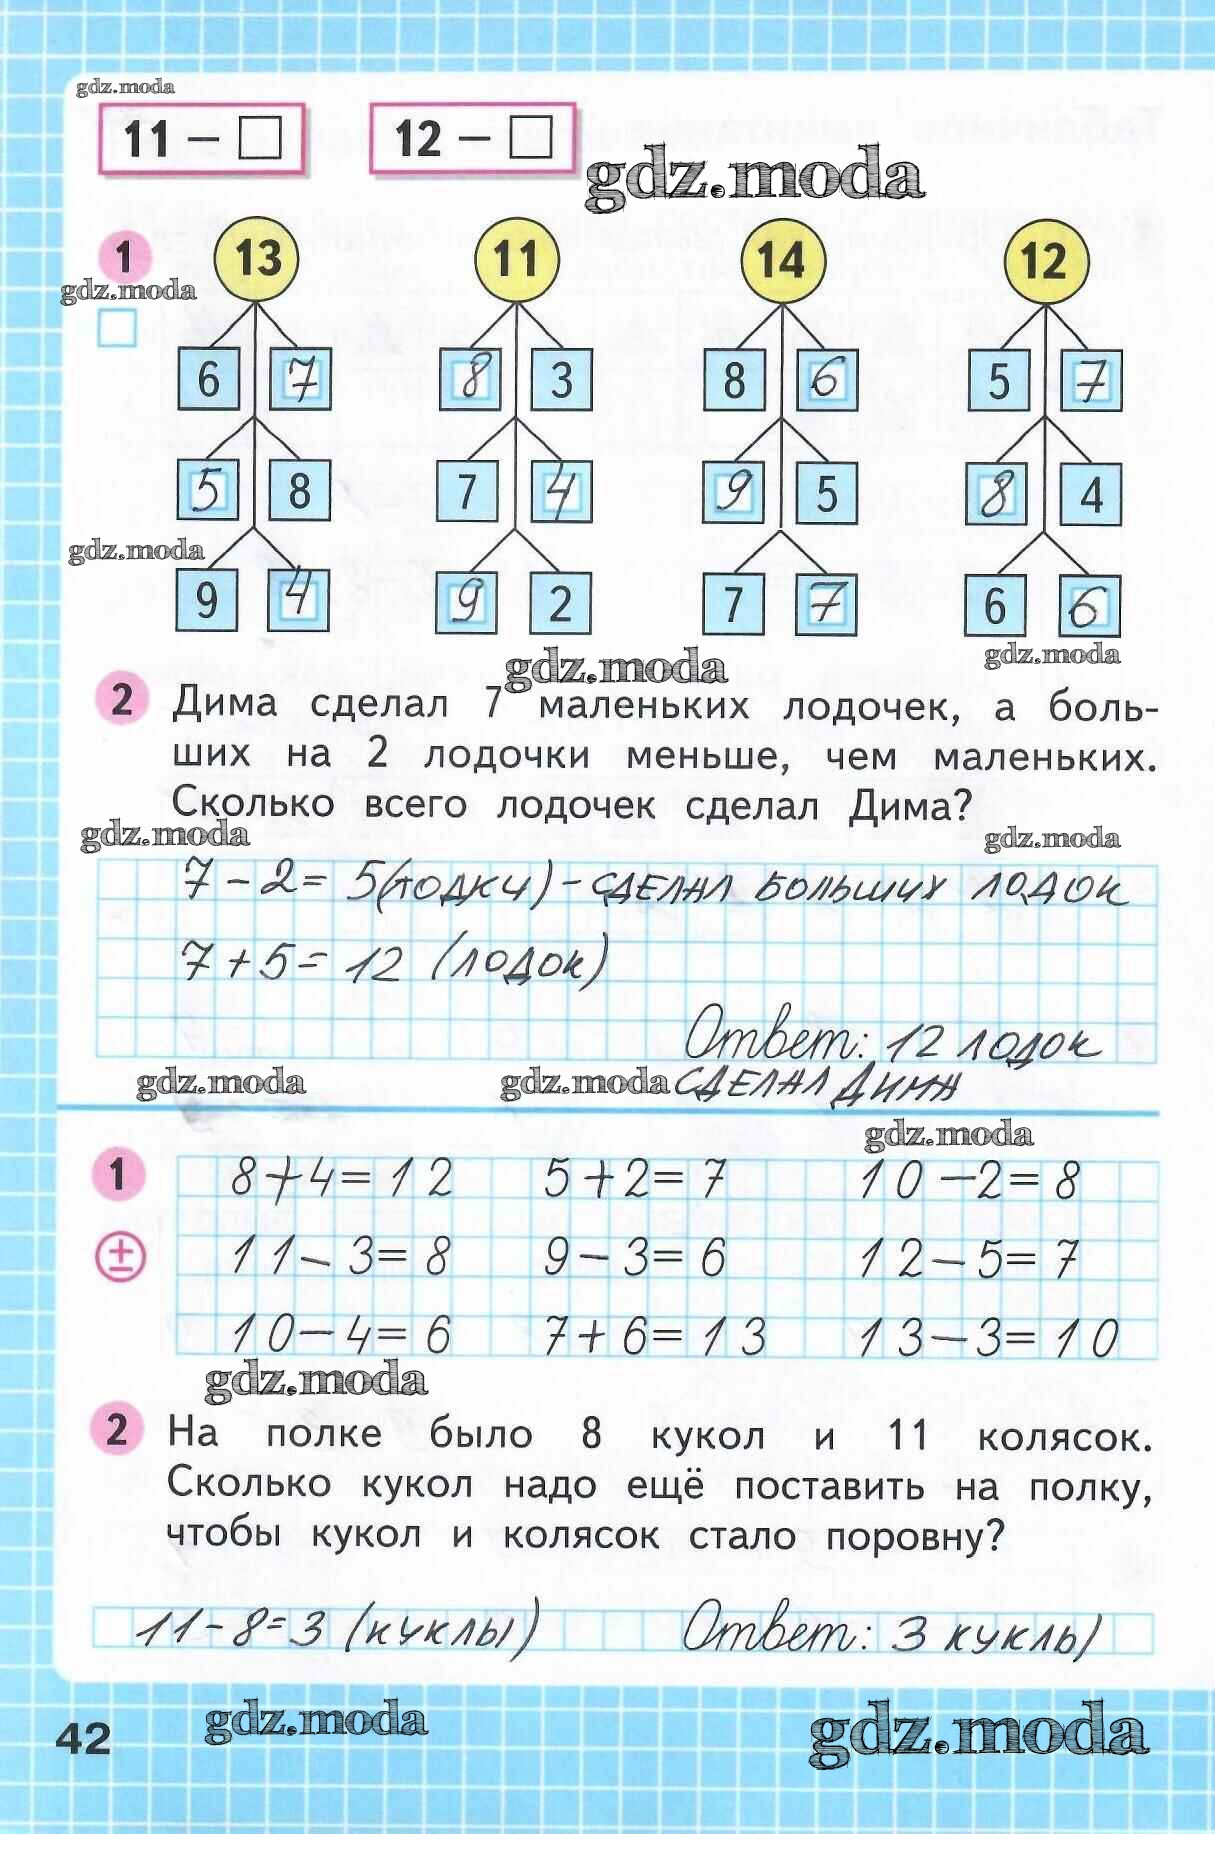 gdz.moda
11 – □ 12 – □
gdz.moda
1 13 11 14 12
gdz.moda
6 7 8 3 8 6 5 7
5 8 7 4 9 5 8 4
gdz.moda
9 4 9 2 7 7 6 6
gdz.moda gdz.moda
2 Дима сделал 7 маленьких лодочек, а боль-
ших на 2 лодочки меньше, чем маленьких.
Сколько всего лодочек сделал Дима?
gdz.moda gdz.moda
7 – 2 = 5 (лодки) – СДЕЛАЛ БОЛЬШИХ ЛОДОК
7 + 5 = 12 (ЛОДОК)
Ответ: 12 ЛОДОК
gdz.moda gdz.moda СДЕЛАЛ ДИМА
gdz.moda
1 8+4=12 5+2=7 10–2=8
± 11–3=8 9–3=6 12–5=7
10–4=6 7+6=13 13–3=10
gdz.moda
2 На полке было 8 кукол и 11 колясок.
Сколько кукол надо ещё поставить на полку,
чтобы кукол и колясок стало поровну?
11–8=3 (КУКЛЫ) Ответ: 3 КУКЛЫ
42 gdz.moda gdz.moda